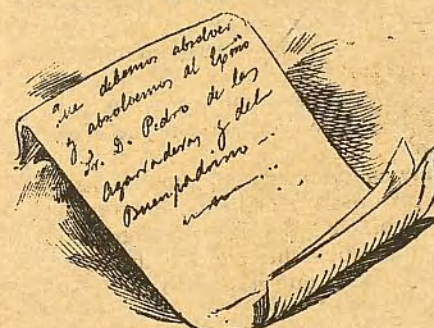 que debemos absolver
y absolvemos al Exmo
Sr. D. Pedro de las
Agarraderas y del
Buenpadrino...